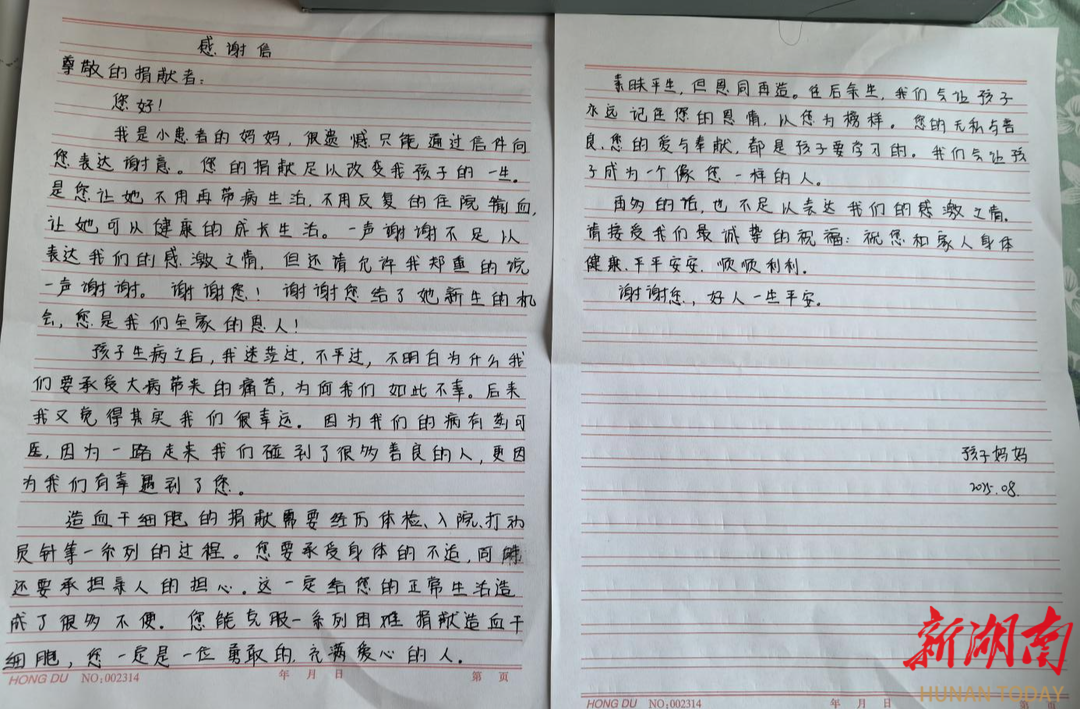 感谢信
尊敬的捐献者:
您好!
我是小患者的妈妈,很遗憾只能通过信件向
您表达谢意。您的捐献足以改变我孩子的一生。
是您让她不用再带病生活,不用反复的住院输血,
让她可以健康的成长生活。一声谢谢不足以
表达我们的感激之情,但还请允许我郑重的说
一声谢谢。谢谢您!谢谢您给了她新生的机
会,您是我们全家的恩人!
孩子生病之后,我迷茫过,不平过,不明白为什么我
们要承受大病带来的痛苦,为何我们如此不幸。后来
我又觉得其实我们很幸运。因为我们的病有药可
医,因为一路走来我们碰到了很多善良的人,更因
为我们有幸遇到了您。
造血干细胞的捐献需要经历体检、入院、打动
员针等一系列的过程。您要承受身体的不适,同时
还要承担亲人的担心。这一定给您的正常生活造
成了很多不便。您能克服一系列困难捐献造血干
细胞,您一定是一位勇敢的,充满爱心的人。
HONG DU NO:002314 年 月 日 第 页
素昧平生,但恩同再造。往后余生,我们会让孩子
永远记住您的恩情,以您为榜样。您的无私与善
良,您的爱与奉献,都是孩子要学习的。我们会让孩
子成为一个像您一样的人。
再多的话,也不足以表达我们的感激之情。
请接受我们最诚挚的祝福:祝您和家人身体
健康,平平安安,顺顺利利。
谢谢您,好人一生平安。
孩子妈妈
2025.08.
HONG DU NO:002314 年 月 日 第 页
新湖南
HUNAN TODAY